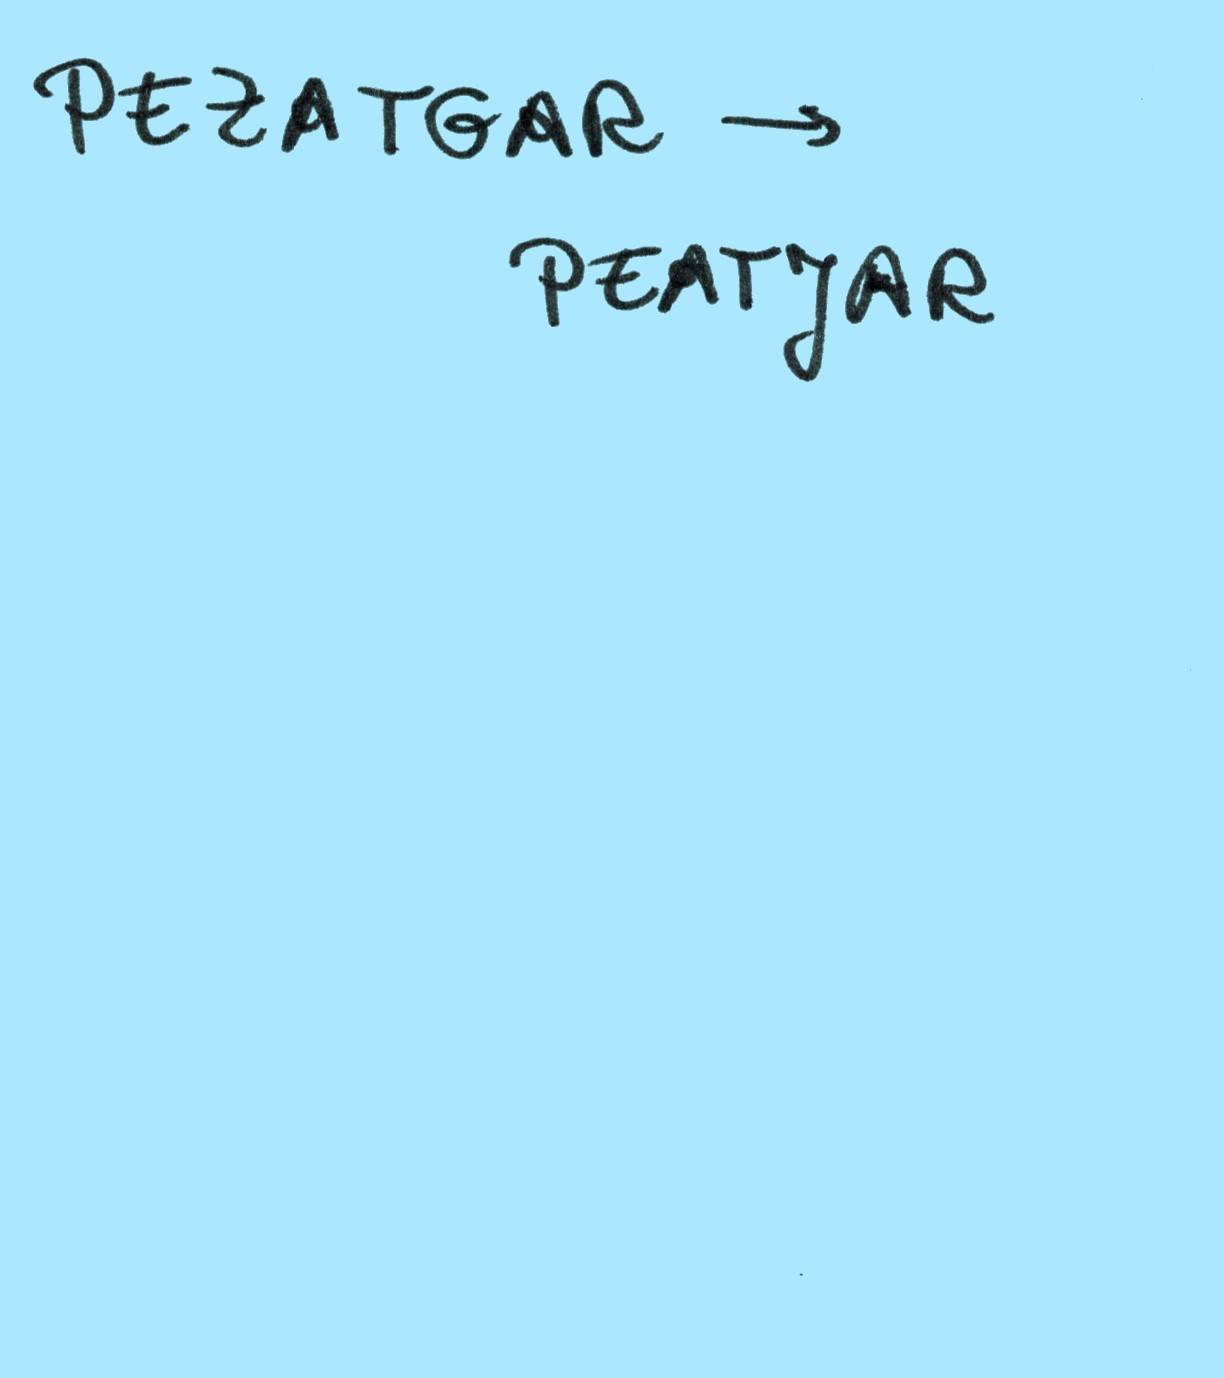 PEZATGAR →
PEATJAR